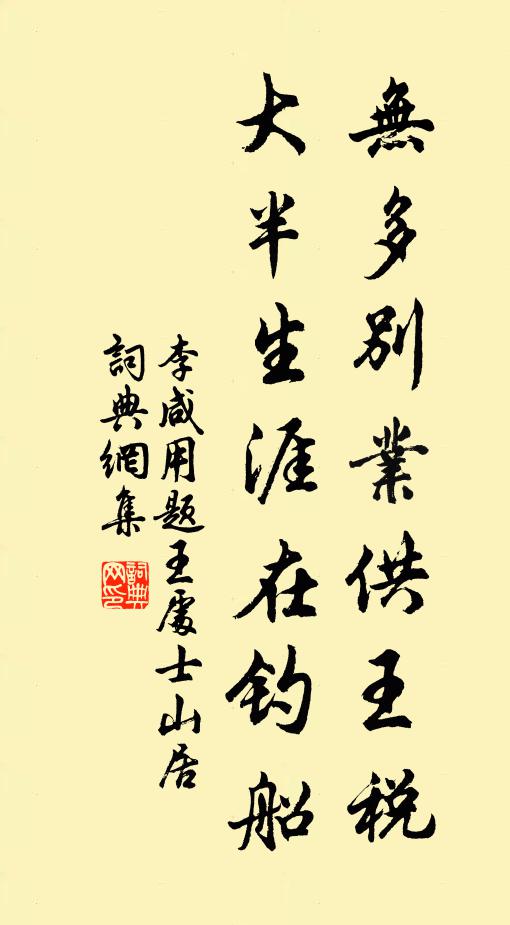 無多別業供王税
大半生涯在钓船
李咸用题王處士山居
詞典網集
詞典网印